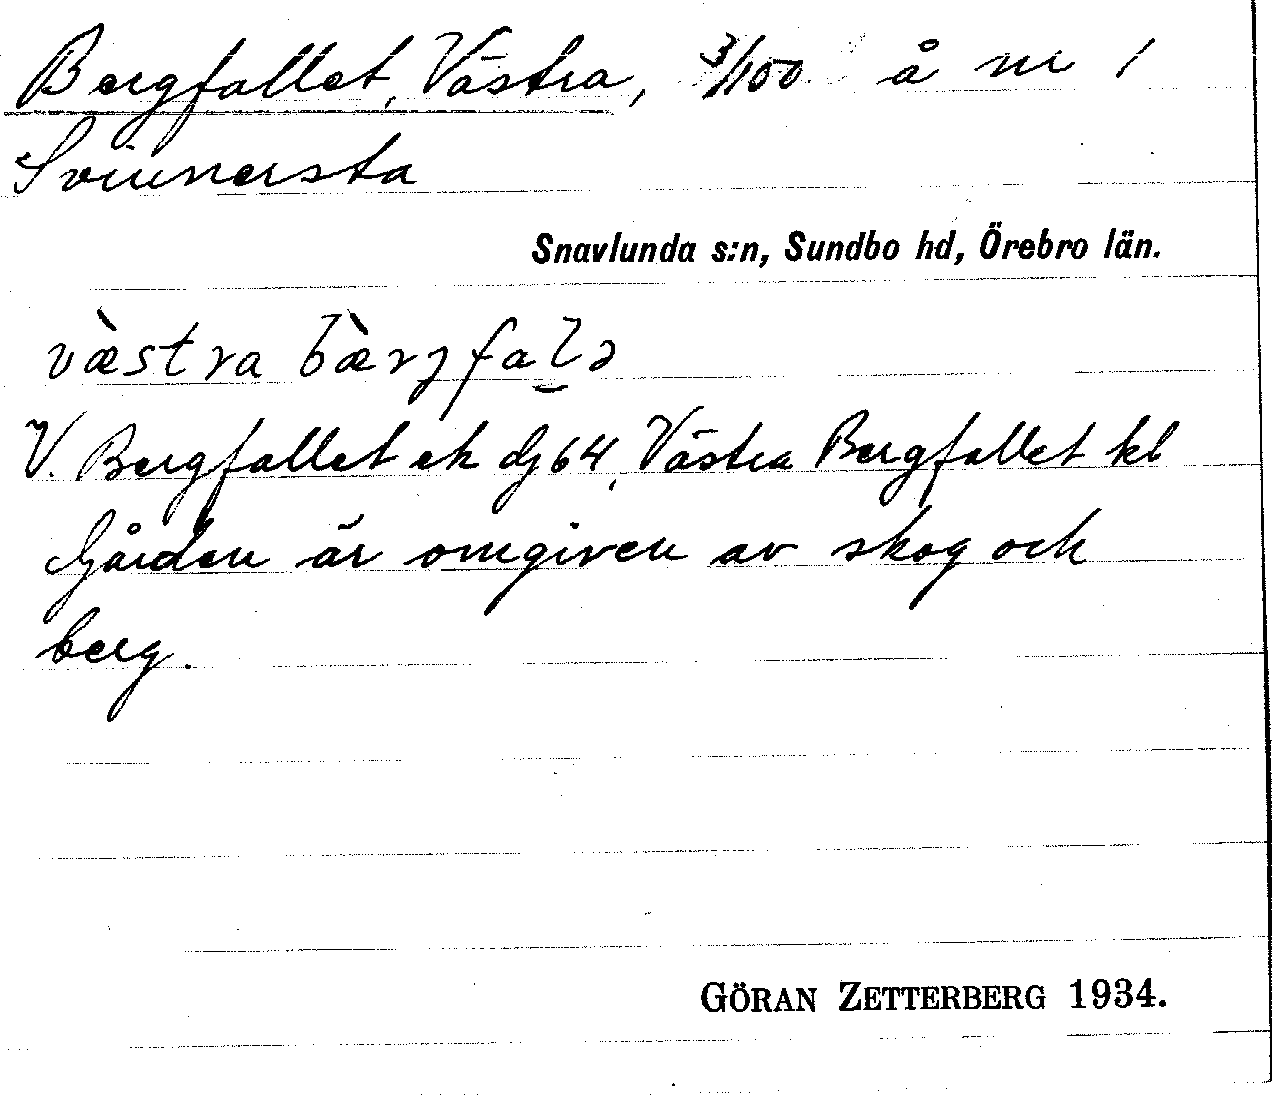 Bergfallet, Västra, 3/100 å nr 1
Svinnersta
Snavlunda s:n, Sundbo hd, Örebro län.
væ̀stra bæ̀rjfalə
V. Bergfallet ek dj64, Västra Bergfallet kl
Gården är omgiven av skog och
berg.
GÖRAN ZETTERBERG 1934.